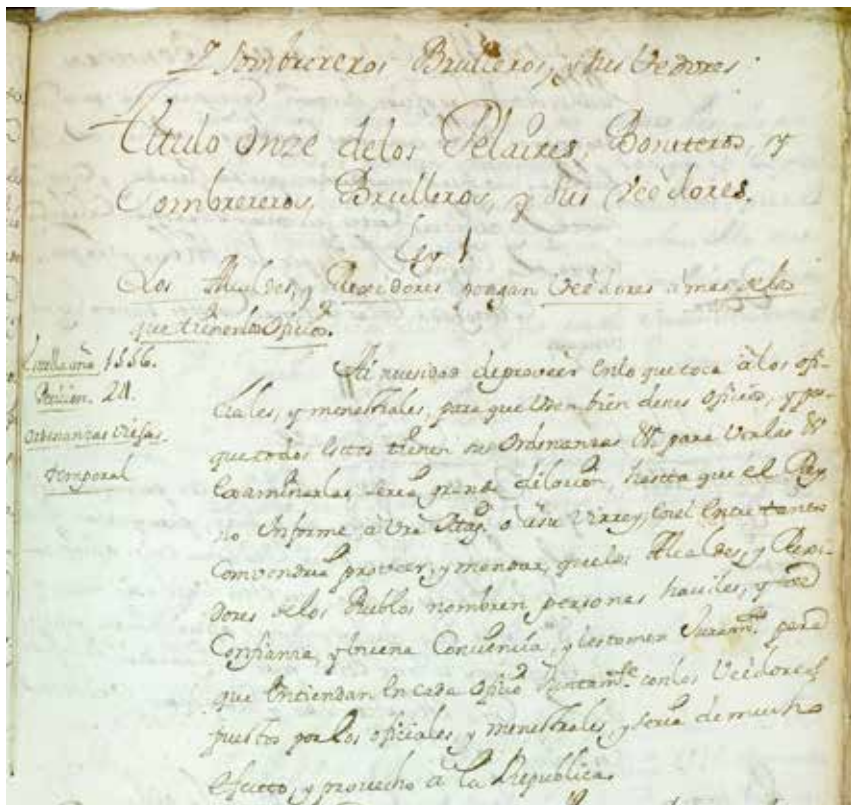 Y Sombrereros Brulleros, y sus Veedores.
Titulo Onze delos Pelaires, Boneteros, y
Sombrereros, Brulleros, y sus Veedores.
Ley 1
Los Alcaldes, y Rexidores pongan Veedores a mas de los
que tienen los Oficios.
Estella año 1556.
Peticion. 24.
Ordenanzas Viejas.
temporal
Ai necesidad de proveer en lo que toca à los ofi-
ciales, y menestrales, para que Usen bien de sus oficios, y por-
que todos estos tienen sus Ordenanzas & para Verlas &
Examinarlas seria grande dilacion, hasta que el
no Informe, a Vra Mag. o à su Virrey, en el Entre tanto
Convendria proveer, y mandar, que los Alcaldes, y Rexi-
dores de los Pueblos nombren personas haviles, y de
Confianza, y buena Conciencia, y les tomen Juramto. para
que Entiendan en cada Oficio Juntamte. con los Veedores
puestos por los oficiales, y menestrales, y seria de mucho
efecto, y provecho à la Republica.